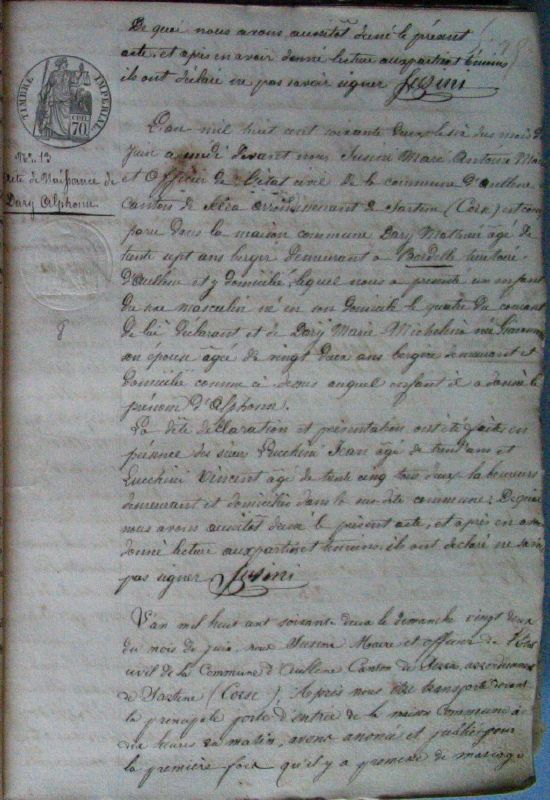 De quoi nous avons aussitôt dressé le présent
acte, et après en avoir donné lecture aux parties et témoins
ils ont déclaré ne pas savoir signer Susini
TIMBRE IMPERIAL
70
N° 13
Acte de Naissance de
Dary Alphonse
L'an mil huit cent soixante deux le six du mois de
Juin à midi devant nous Susini Marc Antoine Maire
et Officier de l'état civil de la commune d'Aullene
Canton de arrondissement de Sartene (Corse) est com
paru dans la maison commune Dary Mathieu âgé de
trente sept ans berger demeurant à territoire
d'Aullene et y domicilié, lequel nous a présenté un enfant
du sexe masculin né en son domicile le quatre du courant
de lui déclarant et de Dary Marie Micheline née
son épouse âgée de vingt deux ans bergère demeurant et
domiciliée comme ci dessus auquel enfant il a donné le
prénom d'Alphonse.
La dite déclaration et présentation ont été faites en
présence des sieurs Lucchini Jean âgé de trent'ans et
Lucchini Vincent âgé de trente cinq tous deux laboureurs
demeurant et domiciliés dans la sus dite commune; De quoi
nous avons aussitôt dressé le présent acte, et après en avoir
donné lecture aux parties et témoins, ils ont déclaré ne savoir
pas signer Susini
L'an mil huit cent soixante deux le dimanche vingt deux
du mois de juin nous Susini Maire et officier de l'état
civil de la Commune d'Aullene Canton de arrondissement
de Sartène (Corse). Après nous être transporté devant
la principale porte d'entrée de la maison Commune à
dix heures du matin, avons annoncé et publié pour
la première fois qu'il y a promesse de mariage